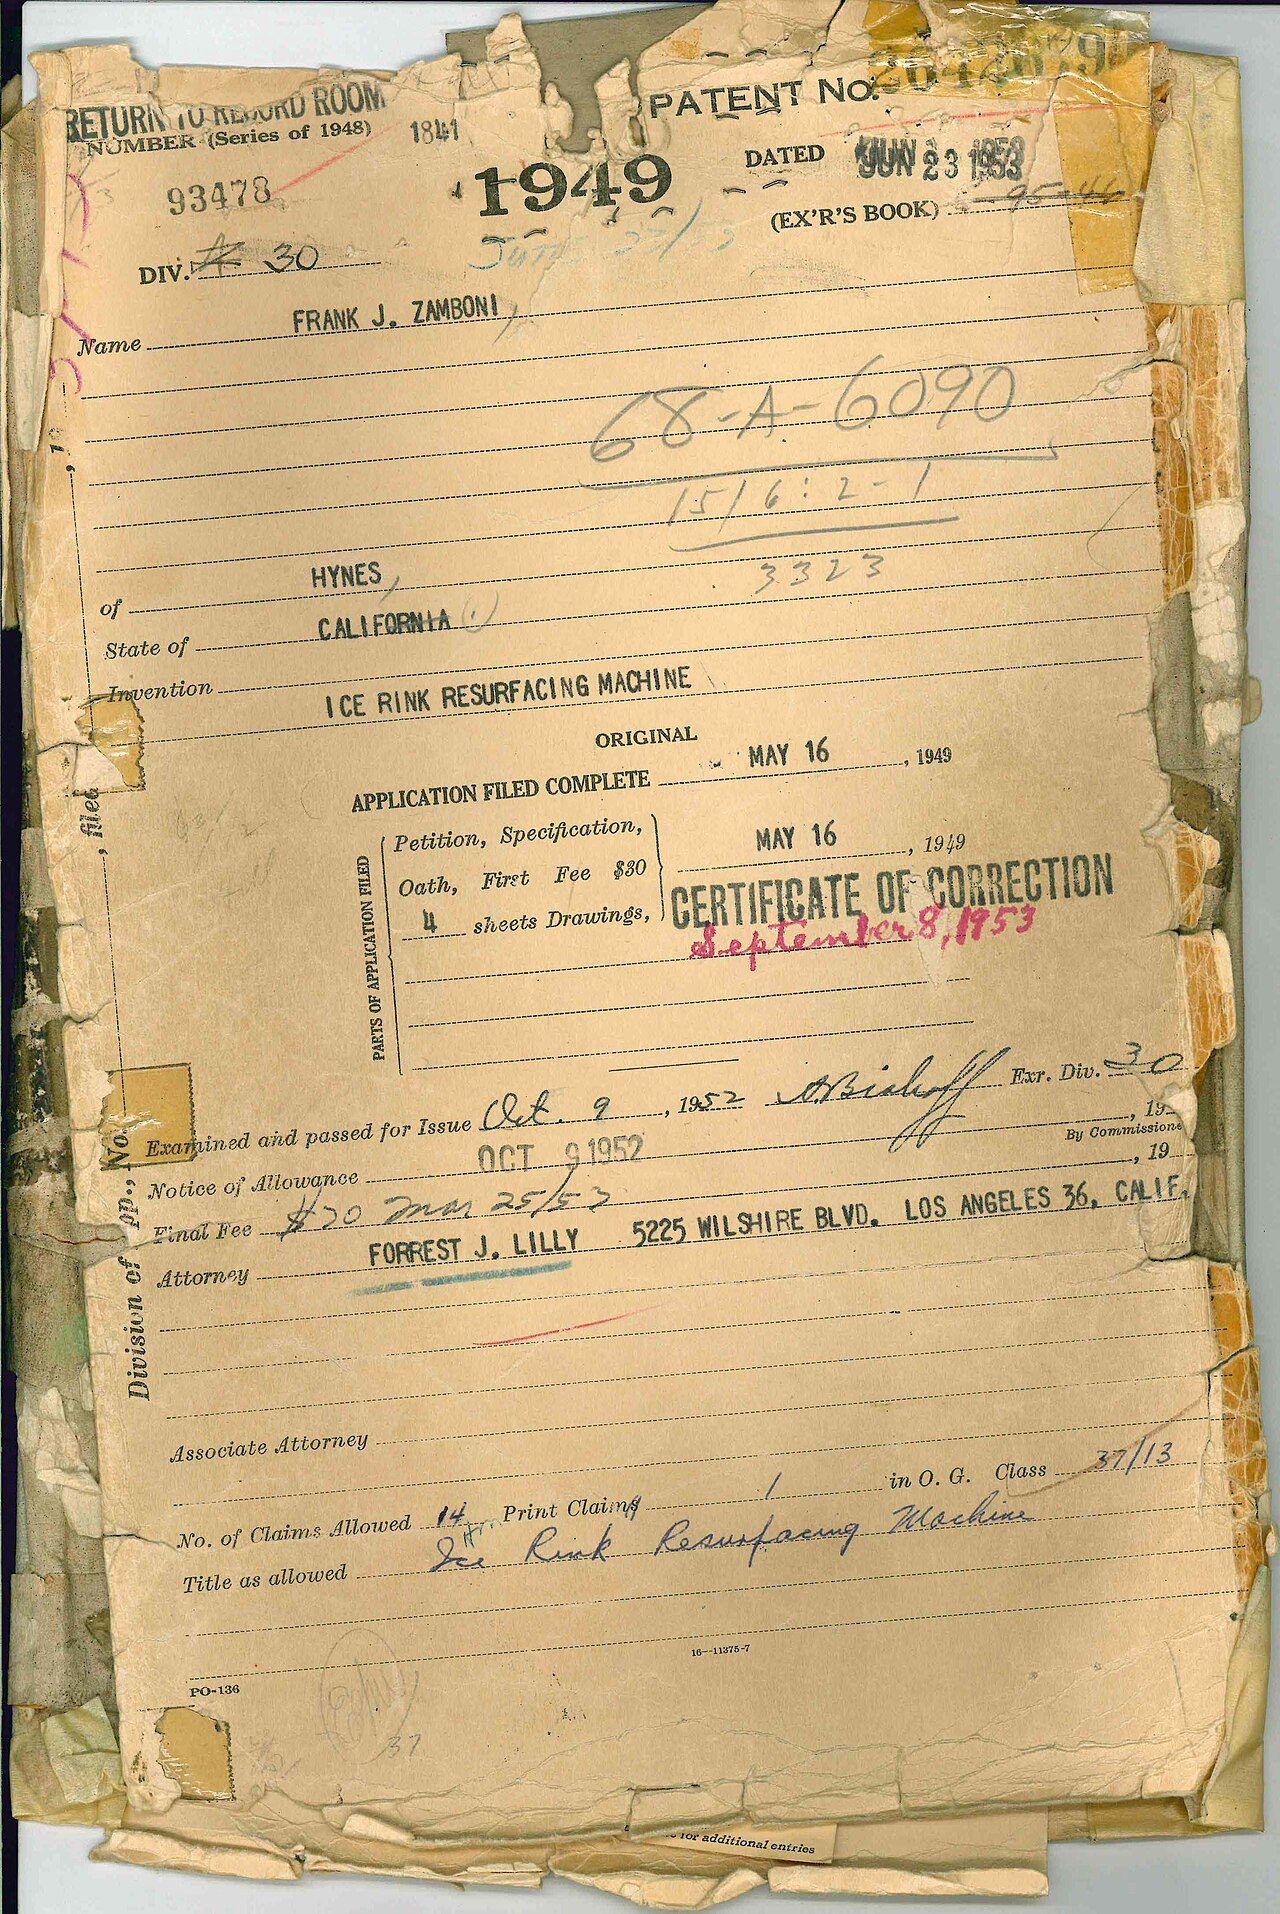 RETURN TO RECORD ROOM
PATENT No.
NUMBER (Series of 1948) 1841
1949
DATED JUN 23 1953
93478
(EX'R'S BOOK) 95-46
DIV. 30
June 23/53
Name FRANK J. ZAMBONI,
68-A-6090
1516:2-1
3323
of HYNES,
State of CALIFORNIA (1)
Invention ICE RINK RESURFACING MACHINE
ORIGINAL
APPLICATION FILED COMPLETE MAY 16, 1949
PARTS OF APPLICATION FILED
Petition, Specification,
MAY 16, 1949
Oath, First Fee $30
CERTIFICATE OF CORRECTION
4 sheets Drawings,
September 8, 1953
Examined and passed for Issue Oct. 9, 1952 Exr. Div. 30
Notice of Allowance OCT 9 1952, 19
By Commissione
Final Fee $30 Mar 25/53, 19
Attorney FORREST J. LILLY 5225 WILSHIRE BLVD. LOS ANGELES 36, CALIF.
Associate Attorney
No. of Claims Allowed 14 Print Claim 1 in O. G. Class 37/13
Title as allowed Ice Rink Resurfacing Machine
16—11375-7
PO-136
37
for additional entries
Division of pp., No. , filed , 19